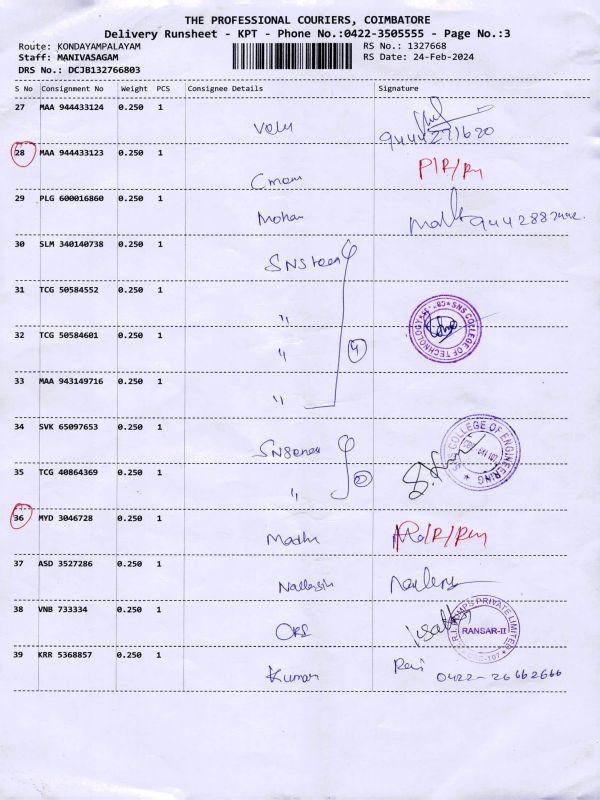 THE PROFESSIONAL COURIERS, COIMBATORE
Delivery Runsheet - KPT - Phone No.:0422-3505555 - Page No.:3
Route: KONDAYAMPALAYAM
RS No.: 1327668
Staff: MANIVASAGAM
RS Date: 24-Feb-2024
DRS No.: DCJB132766803
S No Consignment No Weight PCS Consignee Details Signature
27 MAA 944433124 0.250 1
Velu
28 MAA 944433123 0.250 1
29 PLG 600016860 0.250 1
Mohan
30 SLM 340140738 0.250 1
31 TCG 50584552 0.250 1
"
SNS COLLEGE OF TECHNOLOGY
32 TCG 50584601 0.250 1
" 4
33 MAA 943149716 0.250 1
"
34 SVK 65097653 0.250 1
SNS COLLEGE OF ENGINEERING
35 TCG 40864369 0.250 1
" 2
36 MYD 3046728 0.250 1
Madhu
37 ASD 3527286 0.250 1
38 VNB 733334 0.250 1
PRIVATE LIMITED
RANSAR-II
39 KRR 5368857 0.250 1
Kumar
Ravi
0422-26662666